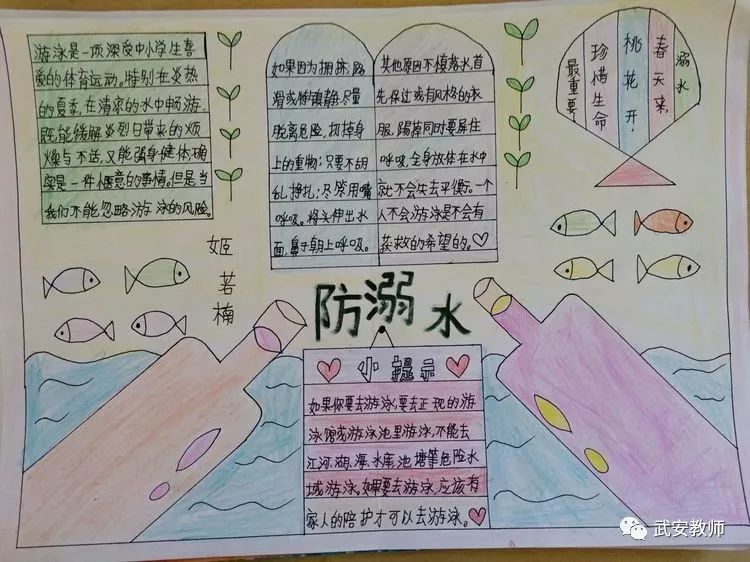 游泳是一项深受中小学生喜
爱的体育运动。特别在炎热
的夏季,在清凉的水中畅游,
既能缓解炎烈日带来的烦
燥与不适,又能强身健体,确
实是一件惬意的事情。但是当
我们不能忽略游泳的风险。
如果因为拥挤,路
滑或
尽量
脱离危险,扔掉身
上的重物;只要不胡
乱挣扎;尽
用嘴
呼吸。将头伸出水
面,鼻子朝上呼吸。
其他原因不慎落水首
先保
的衣
服,踢掉同时要屏住
呼吸,全身放体在水中
就不会失去平衡。一个
人不会游泳是不会有
获救的希望的。
溺水
春天来,
桃花开,
珍惜生命
最重要
姬若楠
防溺水
小提示
如果你要去游泳,要去正规的游
泳馆或游泳池里游泳,不能去
江河、湖、海、水库池塘等危险水
域游泳。如果要去游泳,应该有
家人的陪护才可以去游泳。
武安教师